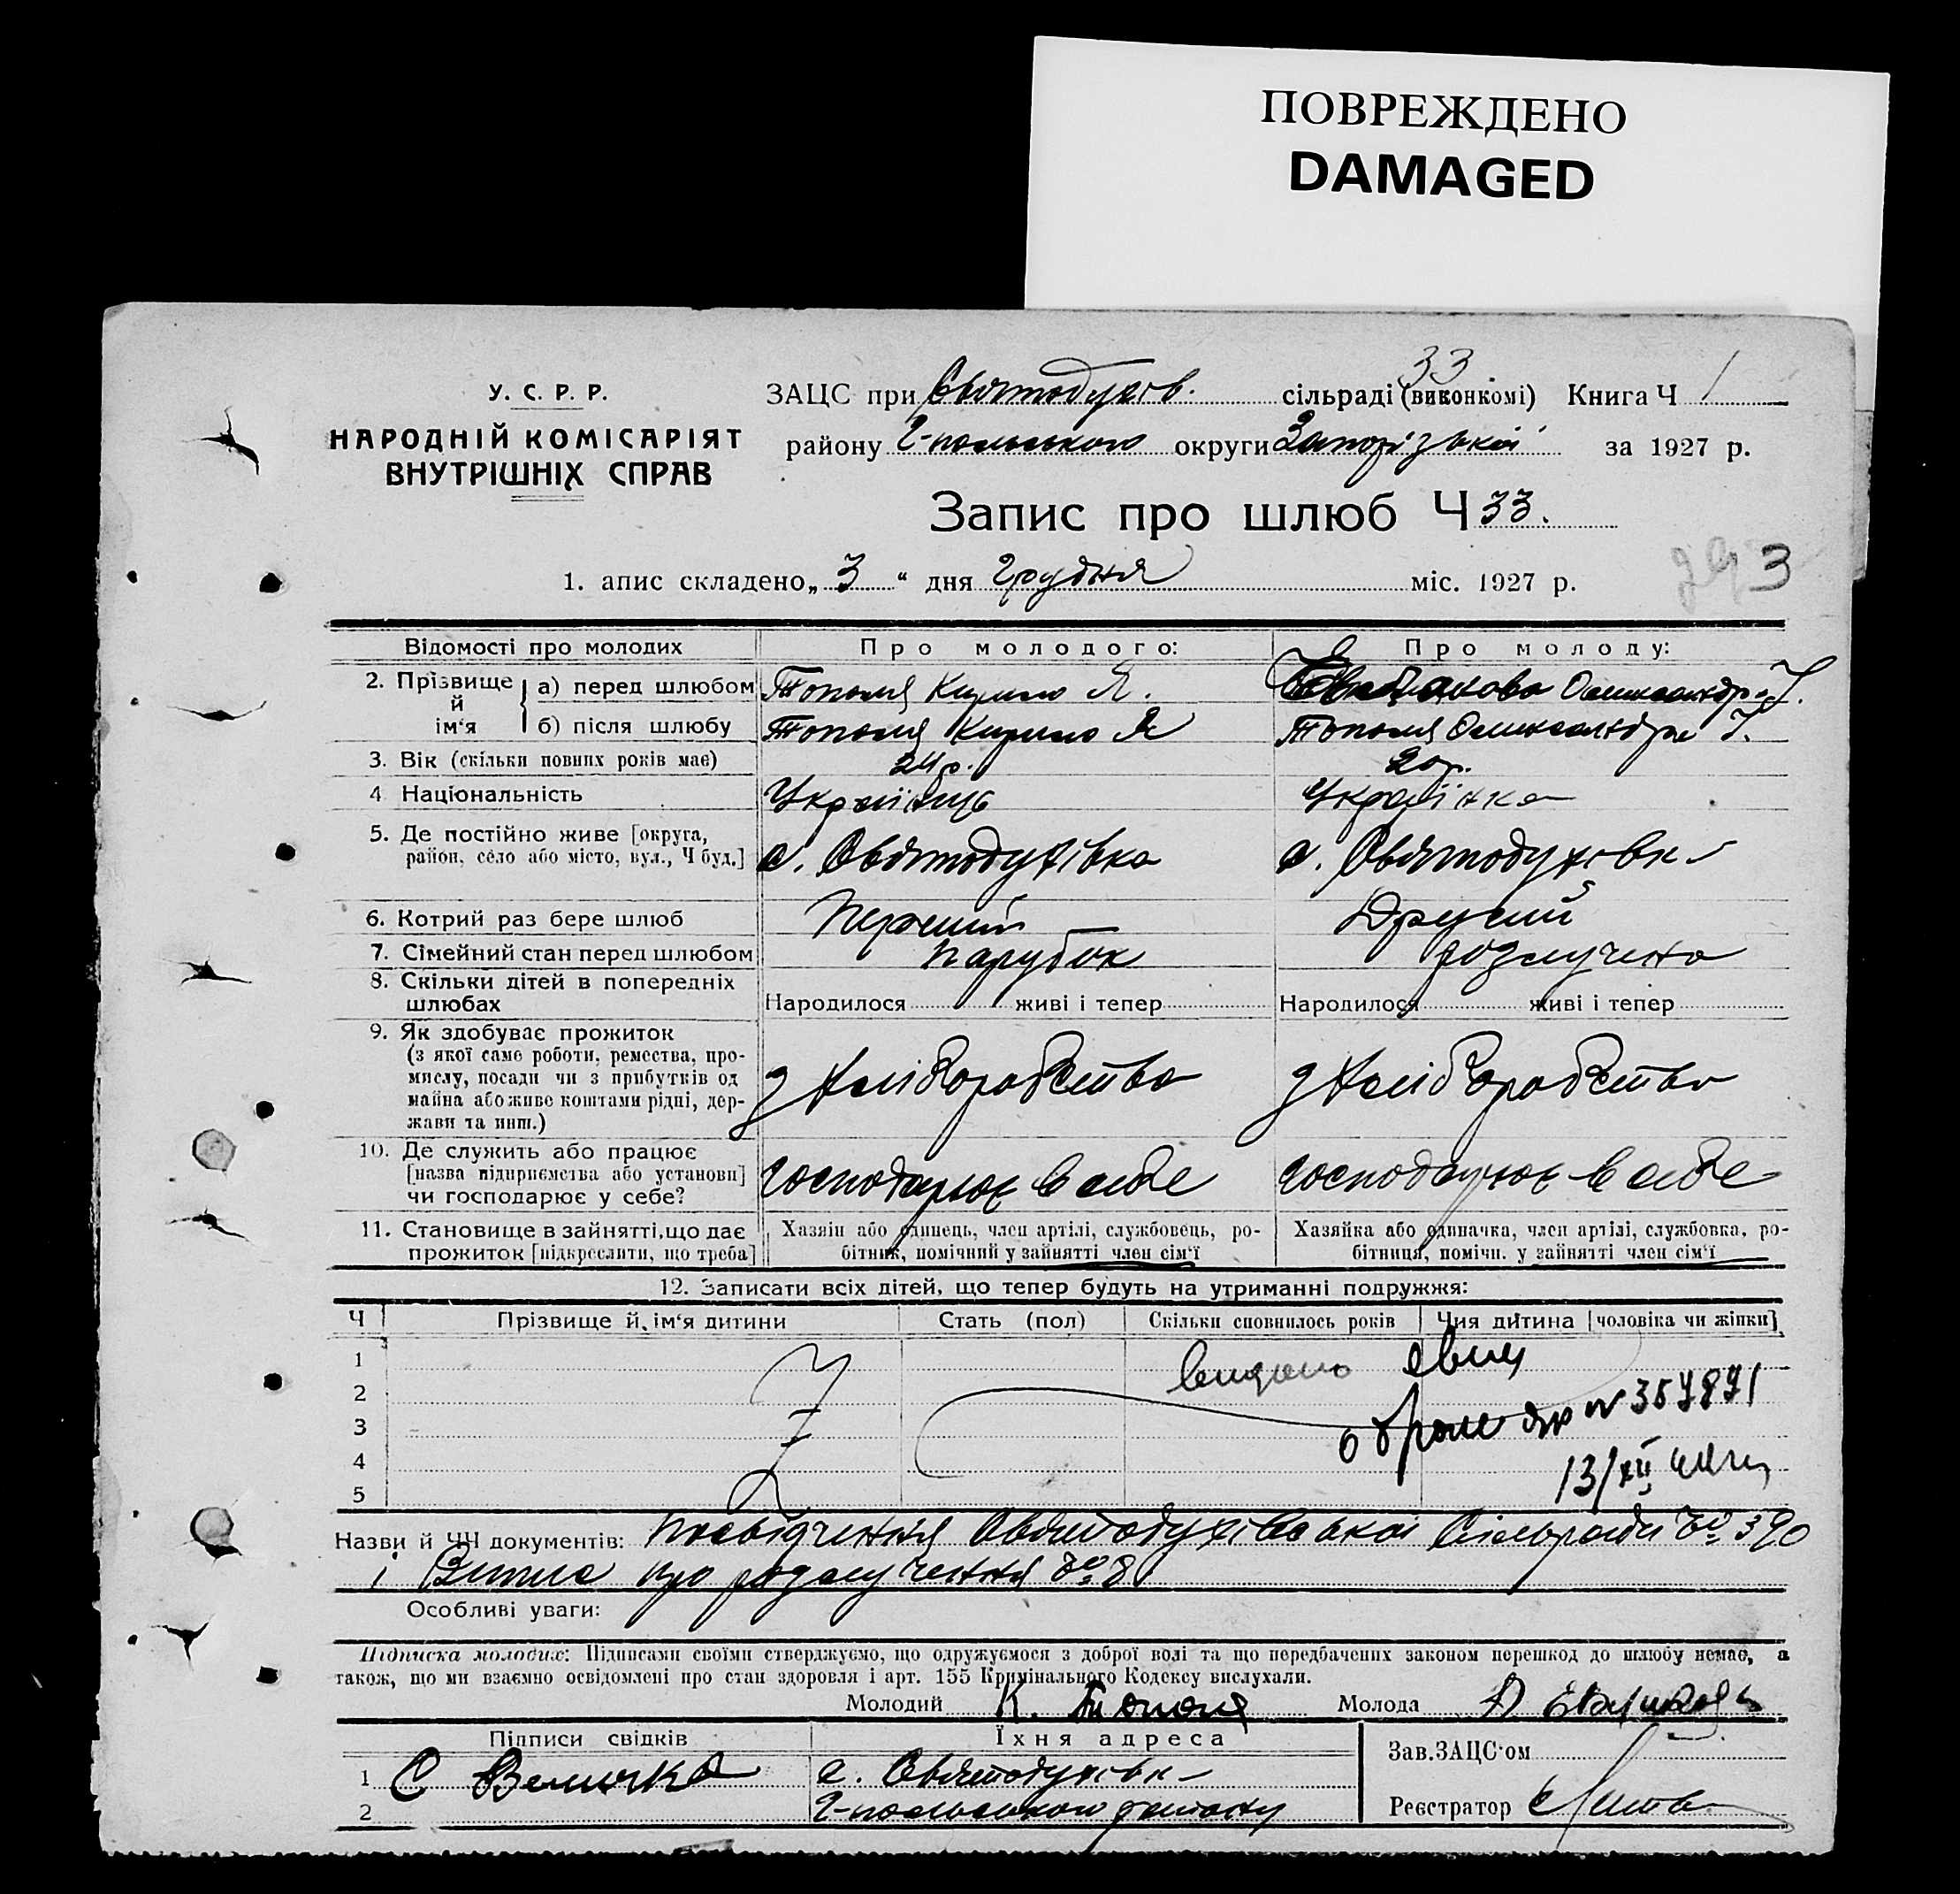 ПОВРЕЖДЕНО
DAMAGED
33
У. С. Р. Р.
НАРОДНІЙ КОМІСАРІЯТ
ВНУТРІШНІХ СПРАВ
ЗАЦС при Святодухів. сільраді (виконкомі) Книга Ч 1
району Г-польського округи Запорізької за 1927 р.
Запис про шлюб Ч 33.
3
1. апис складено „ 3 “ дня Грудня міс. 1927 р.
Відомості про молодих Про молодого: Про молоду:
2. Прізвище й ім‘я
а) перед шлюбом Тополя Кирило Я. Олександра І.
б) після шлюбу Тополя Кирило Я Тополя Олександра І.
3. Вік (скільки повних років має) 24 р. 20 р.
4 Національність Українець Українка
5. Де постійно живе [округа,
район, село або місто, вул., Ч буд.] с. Святодухівка с. Святодухівка
6. Котрий раз бере шлюб Перший Другий
7. Сімейний стан перед шлюбом парубок розлучена
8. Скільки дітей в попередніх
шлюбах Народилося живі і тепер Народилося живі і тепер
9. Як здобуває прожиток
(з якої саме роботи, ремества, про-
мислу, посади чи з прибутків од
майна або живе коштами рідні, дер-
жави та инш.)
з хліборобства з хліборобства
10. Де служить або працює
[назва підприємства або установи]
чи господарює у себе?
господарює в себе господарює в себе
11. Становище в зайнятті, що дає
прожиток [підкреслити, що треба]
Хазяїн або одинець, член артілі, службовець, ро-
бітник, помічний у зайнятті член сім‘ї
Хазяйка або одиначка, член артілі, службовка, ро-
бітниця, помічн. у зайнятті член сім‘ї
12. Записати всіх дітей, що тепер будуть на утриманні подружжя:
Ч Прізвище й ім‘я дитини Стать (пол) Скільки сповнилось років Чия дитина [чоловіка чи жінки]
1
2
3
4
5
13/XII
Назви й ЧЧ документів: посвідчення Святодухівської Сільради № 390
і Випис про розлучення № 8
Особливі уваги:
Підписка молодих: Підписами своїми стверджуємо, що одружуємося з доброї волі та що передбачених законом перешкод до шлюбу немає, а
також, що ми взаємно освідомлені про стан здоровля і арт. 155 Кримінального Кодексу вислухали.
Молодий К. Тополя Молода
Підписи свідків Їхня адреса
1 С Величко с. Святодухівка
2 Г-польського району
Зав.ЗАЦС‘ом
Реєстратор